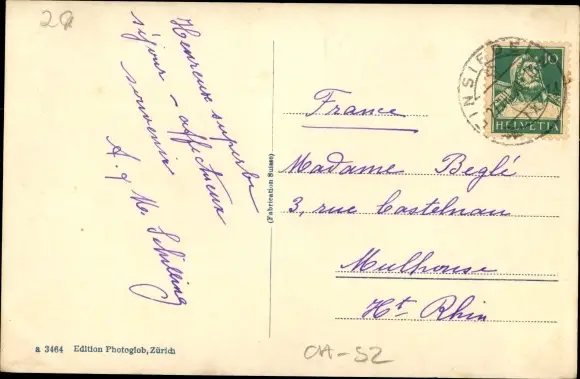 28
Heureux superbe
séjour – affectueux
souvenir
A. & M. Schilling
(Fabrication Suisse)
EINSIEDELN
10
HELVETIA
France
Madame Beglé
3, rue Castelnau
Mulhouse
Ht. Rhin
a 3464 Edition Photoglob, Zürich
CH-52